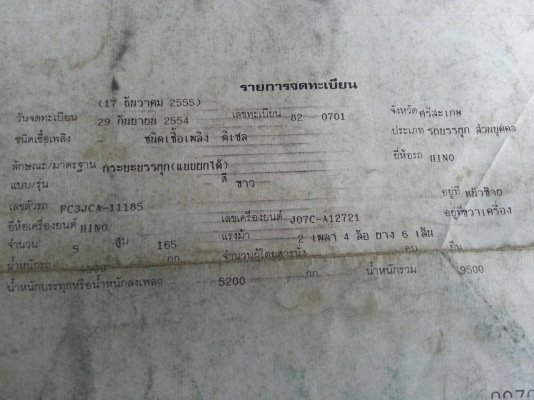 รายการจดทะเบียน
(17 ธันวาคม 2555)
วันจดทะเบียน 29 กันยายน 2554 เลขทะเบียน 82 - 0701 จังหวัด ศรีสะเกษ
ชนิดเชื้อเพลิง - ชนิดเชื้อเพลิง ดีเซล ประเภท รถบรรทุก ส่วนบุคคล
ลักษณะ/มาตรฐาน กระบะบรรทุก(แบบยกได้) ยี่ห้อรถ HINO
แบบ/รุ่น สี ขาว
เลขตัวรถ FC3JCA-11185 อยู่ที่ หน้าซ้าย
ยี่ห้อเครื่องยนต์ HINO เลขเครื่องยนต์ J07C-A12721 อยู่ที่ขวาเครื่อง
จำนวน 5 สูบ 165 แรงม้า 2 เพลา 4 ล้อ ยาง 6 เส้น
น้ำหนักรถ 4300 กก. จำนวนผู้โดยสารนั่ง คน ยืน
น้ำหนักบรรทุกหรือน้ำหนักลงเพลา 5200 กก. น้ำหนักรวม 9500